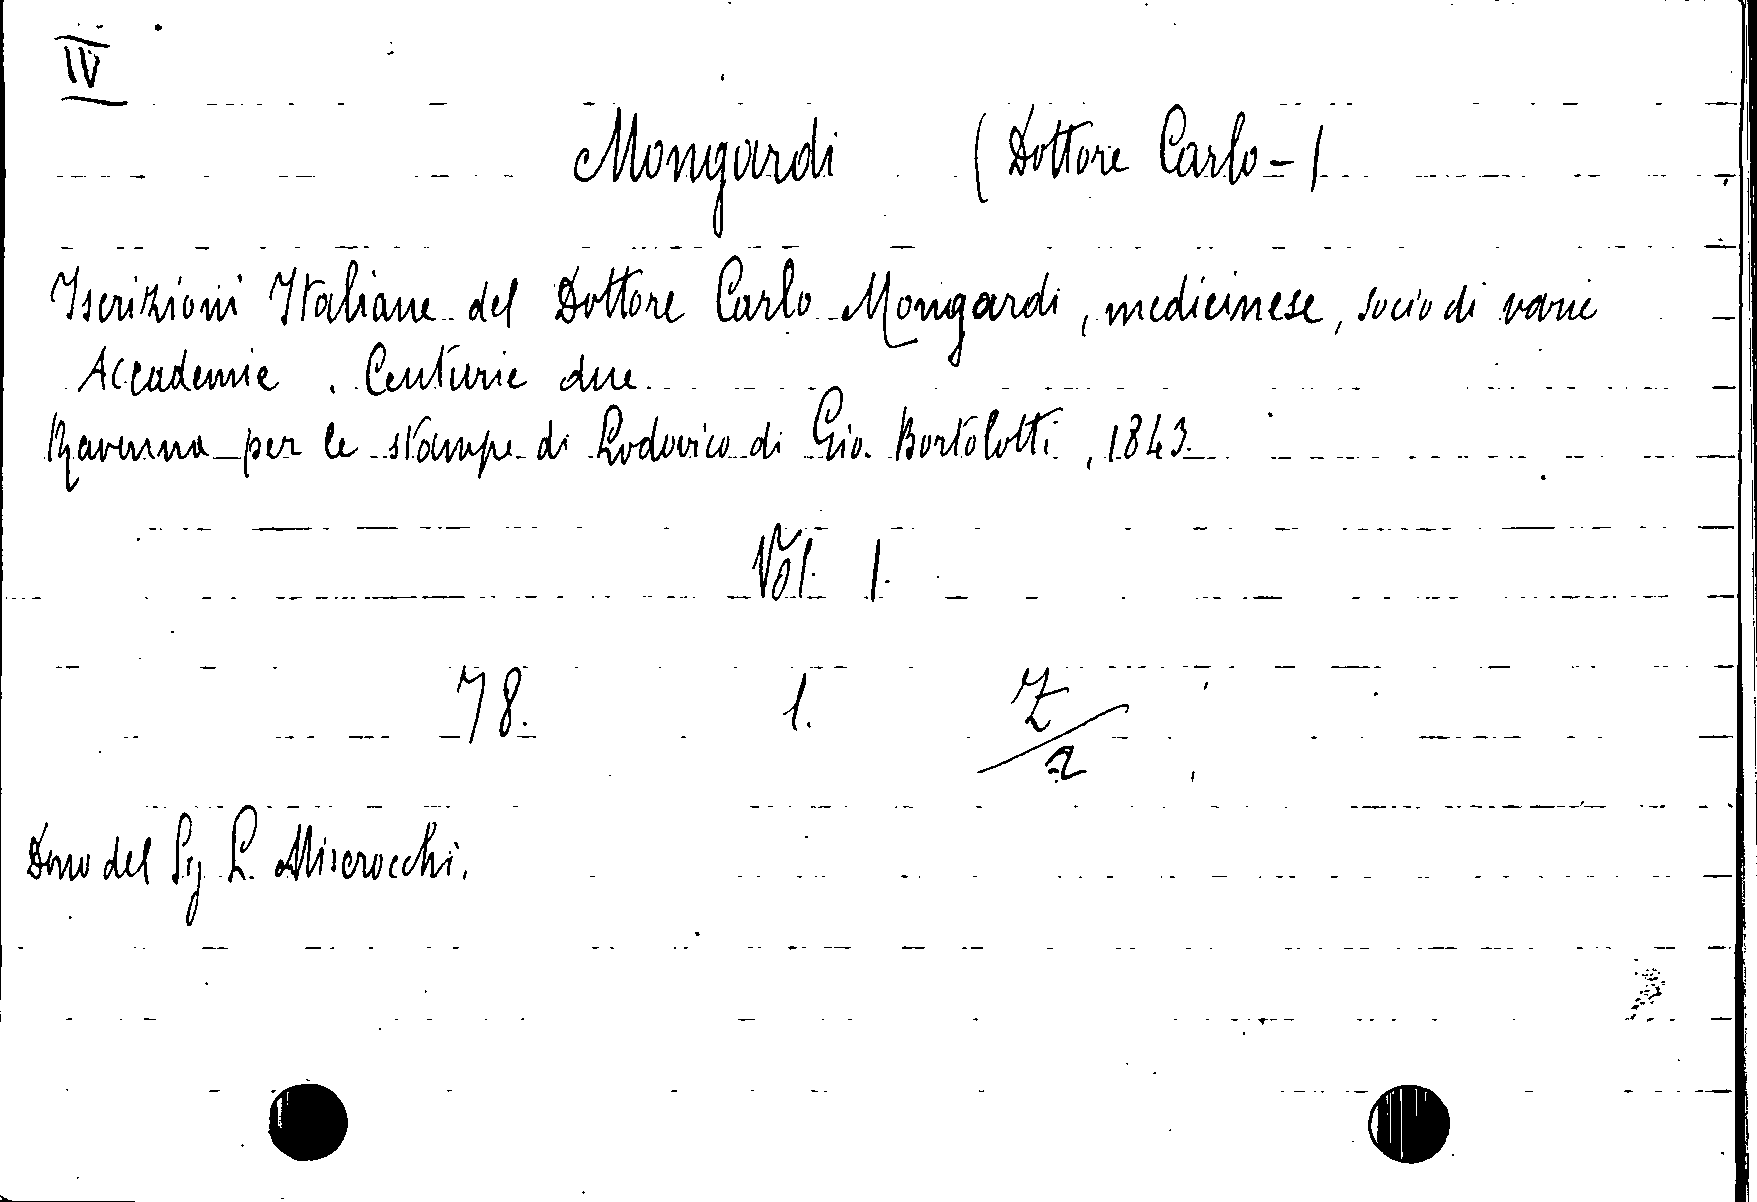 IV
Mongardi (Dottore Carlo-)
Iscrizioni Italiane del Dottore Carlo Mongardi, medicinese, socio di varie
Accademie. Centurie due
Ravenna per le stampe di Lodovico di Gio. Bortolotti, 1843.
Vol. 1.
78. 1. Z/2
Dono del Sig L. Miserocchi.